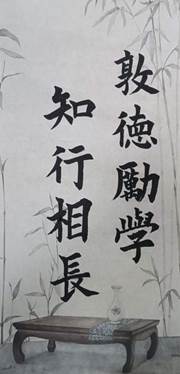 敦德勵學
知行相長